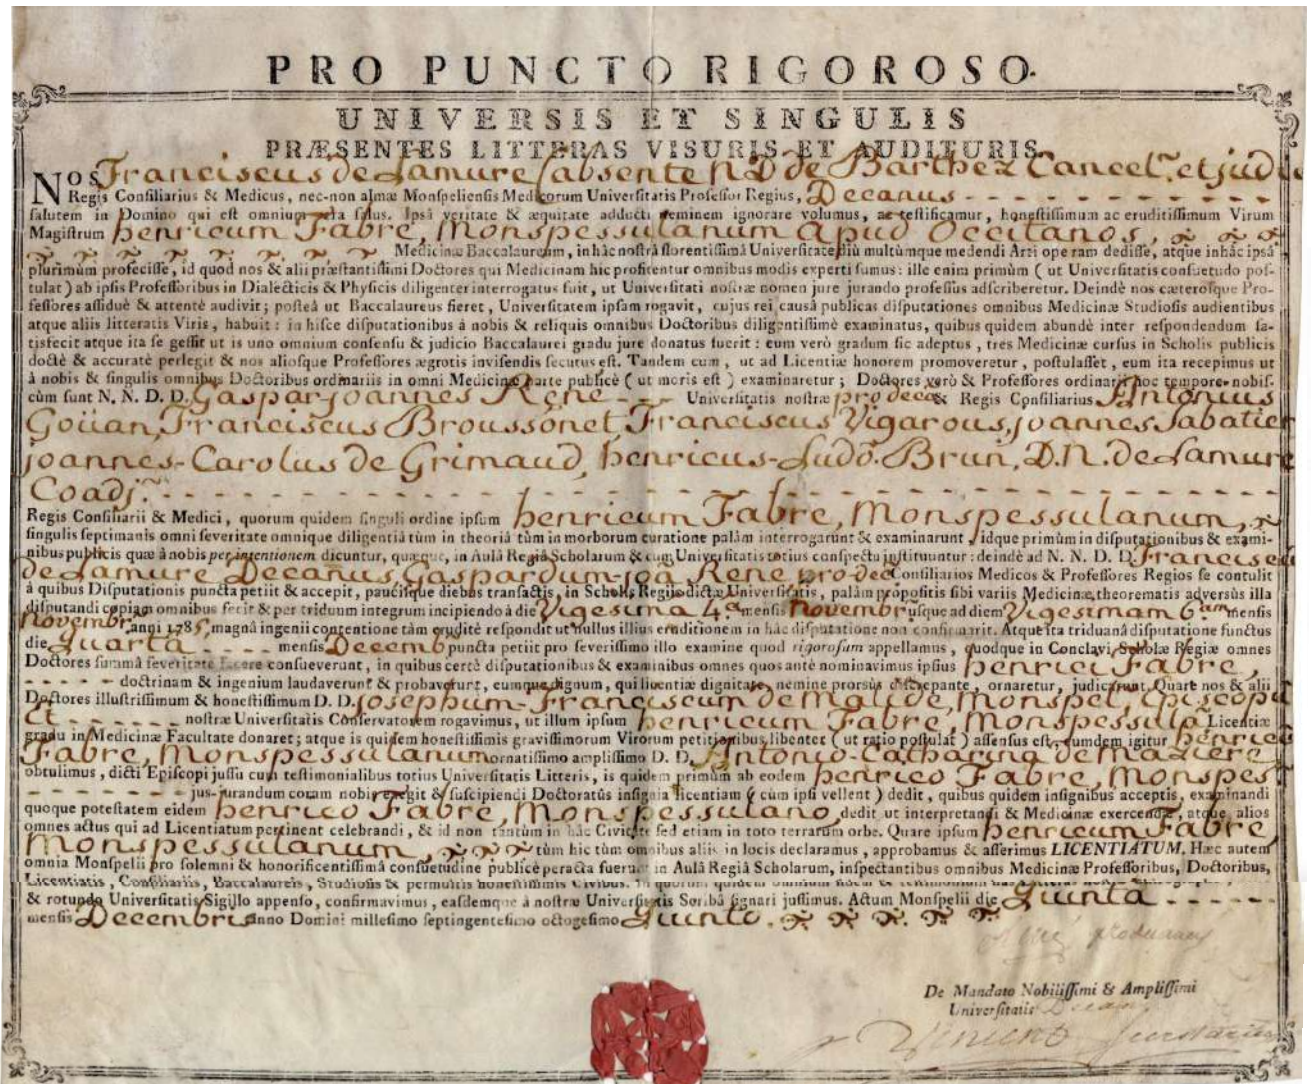 PRO PUNCTO RIGOROSO.
UNIVERSIS ET SINGULIS
PRÆSENTES LITTERAS VISURIS ET AUDITURIS.
NOS Franciscus de Lamure (absente N D de Barthez Cancel. et jud
Regis Consiliarius & Medicus, nec-non almæ Monspeliensis Medicorum Universitatis Professor Regius, Decanus
salutem in Domino qui est omnium vera salus. Ipsâ veritate & æquitate adducti neminem ignorare volumus, ac testificamur, honestissimum ac eruditissimum Virum
Magistrum henricum Fabre, Monspessulanum apud Occitanos,
Medicinæ Baccalaureum, in hâc nostrâ florentissimâ Universitate diù multùmque medendi Arti operam dedisse, atque in hâc ipsâ
plurimùm profecisse, id quod nos & alii præstantissimi Doctores qui Medicinam hic profitentur omnibus modis experti sumus: ille enim primùm ( ut Universitatis consuetudo pos-
tulat ) ab ipsis Professoribus in Dialecticis & Physicis diligenter interrogatus fuit, ut Universitati nostræ nomen jure jurando professus adscriberetur. Deindè nos cæterosque Pro-
fessores assiduè & attentè audivit; posteà ut Baccalaureus fieret, Universitatem ipsam rogavit, cujus rei causâ publicas disputationes omnibus Medicinæ Studiosis audientibus
atque aliis litteratis Viris, habuit: in hisce disputationibus à nobis & reliquis omnibus Doctoribus diligentissimè examinatus, quibus quidem abundè inter respondendum sa-
tisfecit atque ita se gessit ut is uno omnium consensu & judicio Baccalaurei gradu jure donatus fuerit: eum verò gradum sic adeptus, tres Medicinæ cursus in Scholis publicis
doctè & accuratè perlegit & nos aliosque Professores ægrotis invisendis secutus est. Tandem cum, ut ad Licentiæ honorem promoveretur, postulasset, eum ita recepimus ut
à nobis & singulis omnibus Doctoribus ordinariis in omni Medicinæ parte publicè ( ut moris est ) examinaretur; Doctores verò & Professores ordinarii hoc tempore nobis-
cùm sunt N. N. D. D. Gaspar-joannes Réné Universitatis nostræ pro deca & Regis Consiliarius Antonius
Goüan, Franciscus Broussonet, Franciscus Vigarous, joannes Sabatier
joannes-Carolus de Grimaud, henricus-Ludo. Brun, D. N. de Lamure
Coadj.
Regis Consiliarii & Medici, quorum quidem singuli ordine ipsum henricum Fabre, Monspessulanum,
singulis septimanis omni severitate omnique diligentiâ tùm in theoriâ tùm in morborum curatione palàm interrogarunt & examinarunt, idque primùm in disputationibus & exami-
nibus publicis quæ à nobis per intentionem dicuntur, quæque, in Aulâ Regiâ Scholarum & cum Universitatis totius conspectu instituuntur: deindè ad N. N. D. D. Francisc
de Lamure Decanus, Gaspardum-joa Réné pro-dec Consiliarios Medicos & Professores Regios se contulit
à quibus Disputationis puncta petiit & accepit, paucisque diebus transactis, in Scholis Regiis dictæ Universitatis, palàm propositis sibi variis Medicinæ theorematis adversùs illa
disputandi copiam omnibus fecit & per triduum integrum incipiendo à die Vigesima 4.a mensis Novembr. usque ad diem Vigesimam 6.am mensis
Novembr. anni 1785, magnâ ingenii contentione tàm eruditè respondit ut nullus illius eruditionem in hâc disputatione non confirmarit. Atque ita triduanâ disputatione functus
die quarta mensis Decemb puncta petiit pro severissimo illo examine quod rigorosum appellamus, quodque in Conclavi Scholæ Regiæ omnes
Doctores summâ severitate facere consueverunt, in quibus certè disputationibus & examinibus omnes quos antè nominavimus ipsius henrici Fabre,
doctrinam & ingenium laudaverunt & probaverunt, eumque dignum, qui licentiæ dignitate, nemine prorsùs discrepante, ornaretur, judicarunt. Quare nos & alii
Doctores illustrissimum & honestissimum D. D. josephum-Franciscum de Malide, Monspel. Episcopu
et nostræ Universitatis Conservatorem rogavimus, ut illum ipsum henricum Fabre, Monspessula Licentiæ
gradu in Medicinæ Facultate donaret; atque is quidem honestissimis gravissimorum Virorum petitionibus libenter ( ut ratio postulat ) assensus est, eumdem igitur henric
Fabre, Monspessulanum ornatissimo amplissimo D. D. Antonio-Catharina de Maziere
obtulimus, dicti Episcopi jussu cum testimonialibus totius Universitatis Litteris, is quidem primùm ab eodem henrico Fabre, Monspes
jus-jurandum coram nobis exegit & suscipiendi Doctoratûs insignia licentiam ( cùm ipsi vellent ) dedit, quibus quidem insignibus acceptis, examinandi
quoque potestatem eidem henrico Fabre, Monspessulano, dedit ut interpretandi & Medicinæ exercendæ, atque alios
omnes actus qui ad Licentiatum pertinent celebrandi, & id non tantùm in hâc Civitate sed etiam in toto terrarum orbe. Quare ipsum henricum Fabre,
Monspessulanum, tùm hic tùm omnibus aliis in locis declaramus, approbamus & asserimus LICENTIATUM. Hæc autem
omnia Monspelii pro solemni & honorificentissimâ consuetudine publicè peracta fuerunt in Aulâ Regiâ Scholarum, inspectantibus omnibus Medicinæ Professoribus, Doctoribus,
Licentiatis, Consiliariis, Baccalaureis, Studiosis & permultis honestissimis Civibus. In quorum quidem omnium
& rotundo Universitatis Sigillo appenso, confirmavimus, easdemque à nostræ Universitatis Scribâ signari jussimus. Actum Monspelii die Quinta
mensis Decembris anno Domini millesimo septingentesimo octogesimo Quinto.
De Mandato Nobilissimi & Amplissimi
Universitatis Decani
Vincent Secretarius